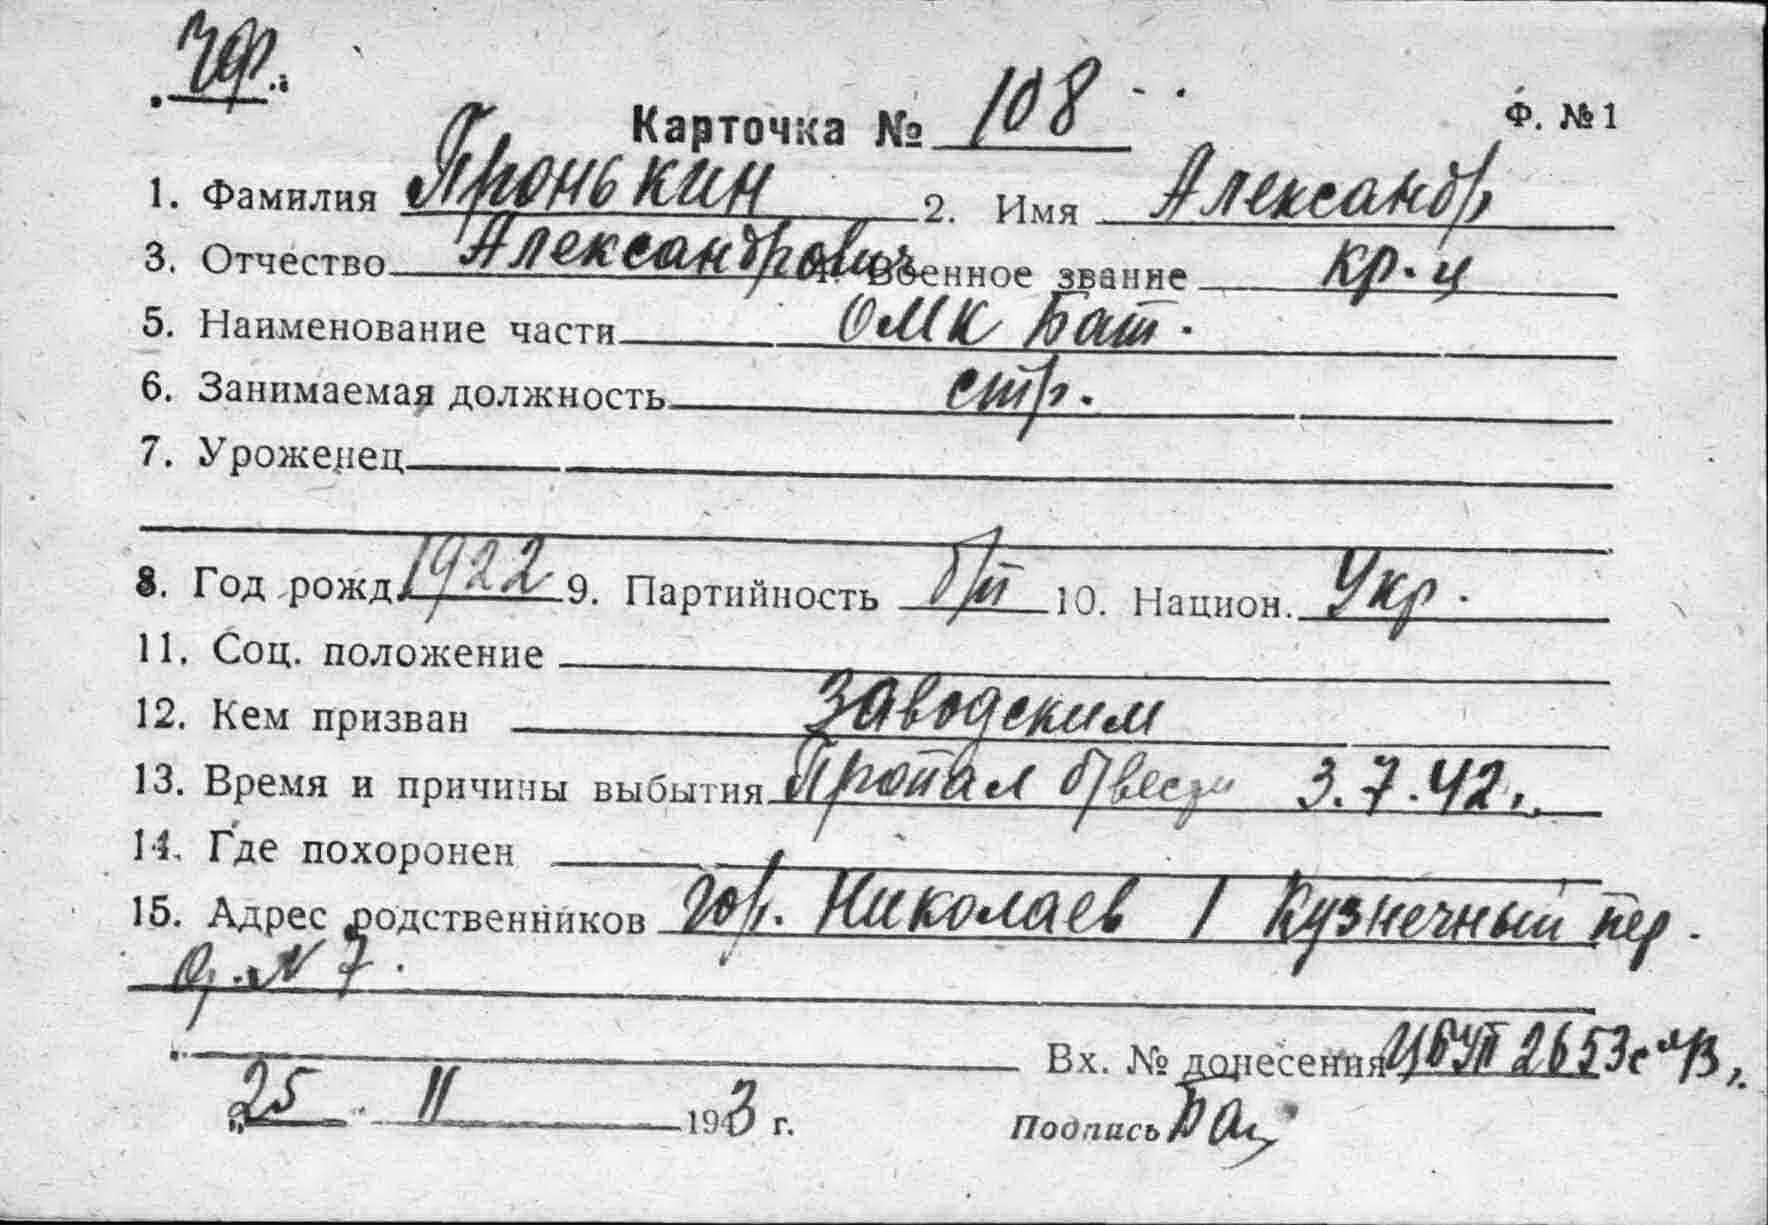 Карточка № 108
Ф. № 1
1. Фамилия Пронькин 2. Имя Александр
3. Отчество Александрович 4. Военное звание кр-ц
5. Наименование части ОМК Бат.
6. Занимаемая должность стр.
7. Уроженец
8. Год рожд. 1922 9. Партийность б/п 10. Национ. Укр.
11. Соц. положение
12. Кем призван Заводским
13. Время и причины выбытия Пропал б/вести 3.7.42г.
14. Где похоронен
15. Адрес родственников гор. Николаев 1 Кузнечный пер.
д. N 7.
Вх. № донесения 2653с
„25 II 1943 г. Подпись